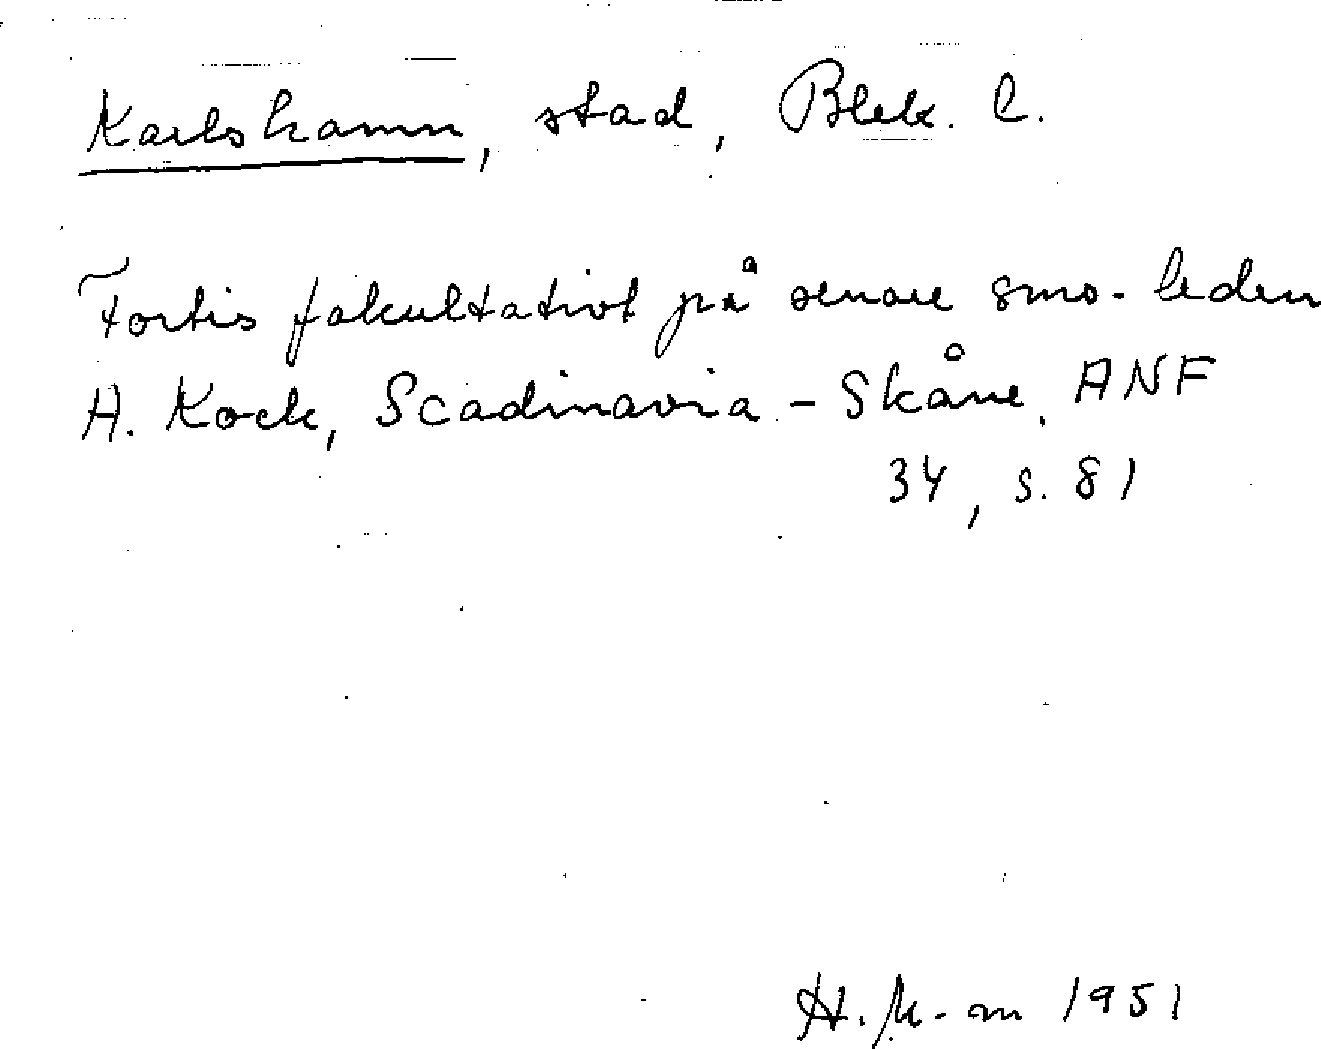 Karlshamn, stad, Blek. l.
Fortis fakultativt på senare sms-leden
A. Kock, Scadinavia - Skåne, ANF
34, s. 81
1951